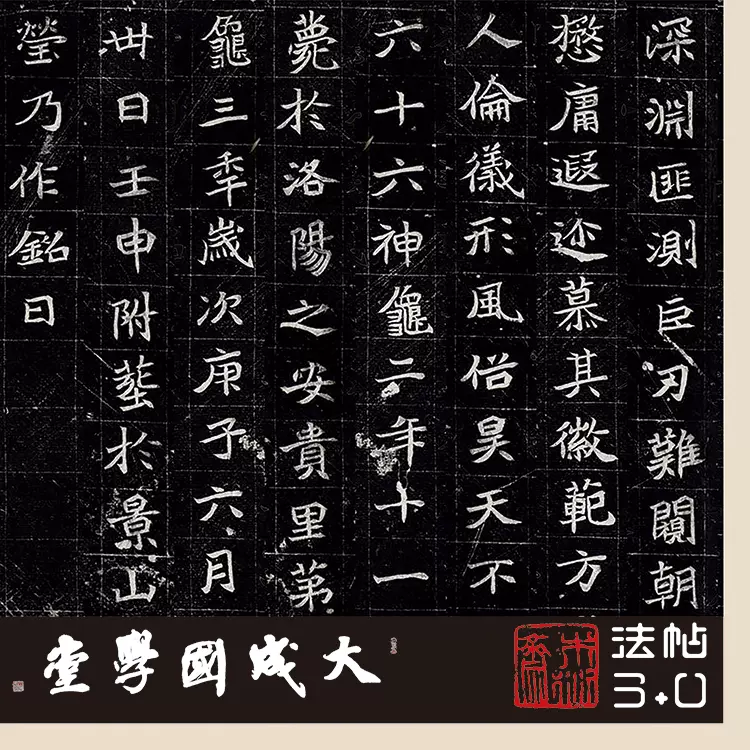 深淵匪測巨刃難闚朝
懋庸遐迩慕其徽範方
人倫儀形風俗昊天不
六十六神龜二年十一
薨於洛陽之安貴里第
龜三年歲次庚子六月
卅日壬申附塟於景山
瑩乃作銘曰
大成國學堂
法帖
3.0